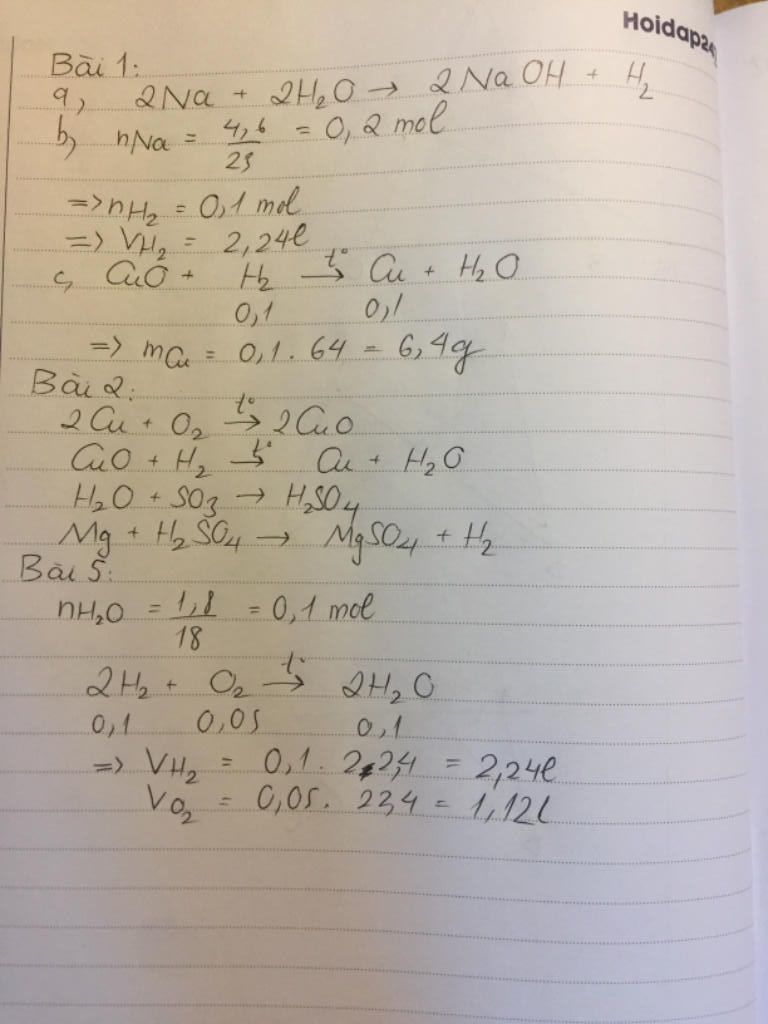 Hoidap24
Bài 1:
a, 2Na + 2H₂O → 2NaOH + H₂
b, nNa = 4,6/23 = 0,2 mol
=> nH₂ = 0,1 mol
=> VH₂ = 2,24l
c, CuO + H₂ →(t°) Cu + H₂O
0,1 0,1
=> mCu = 0,1 . 64 = 6,4g
Bài 2:
2Cu + O₂ →(t°) 2CuO
CuO + H₂ →(t°) Cu + H₂O
H₂O + SO₃ → H₂SO₄
Mg + H₂SO₄ → MgSO₄ + H₂
Bài 5:
nH₂O = 1,8/18 = 0,1 mol
2H₂ + O₂ →(t°) 2H₂O
0,1 0,05 0,1
=> VH₂ = 0,1 . 22,4 = 2,24l
VO₂ = 0,05 . 22,4 = 1,12l